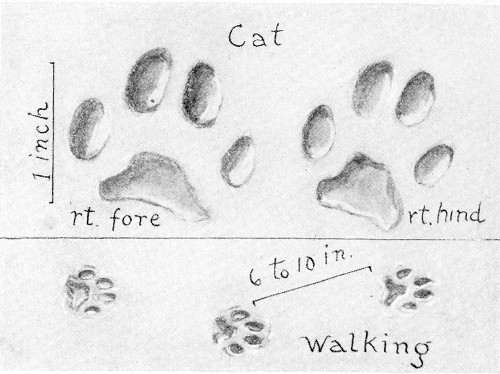 Cat
1 inch
rt. fore
rt. hind
6 to 10 in.
Walking